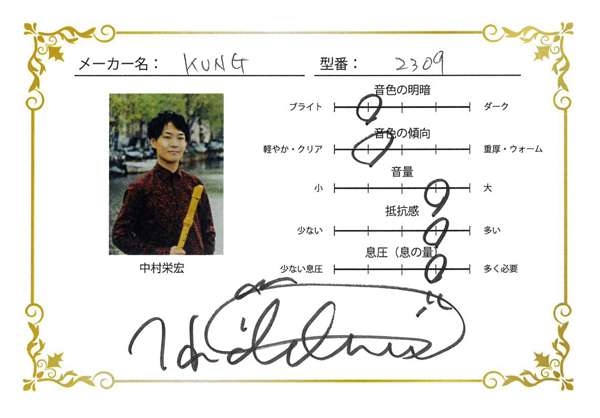 メーカー名： KUNG 型番： 2309
音色の明暗
ブライト ダーク
音色の傾向
軽やか・クリア 重厚・ウォーム
音量
小 大
抵抗感
少ない 多い
息圧（息の量）
少ない息圧 多く必要
中村栄宏